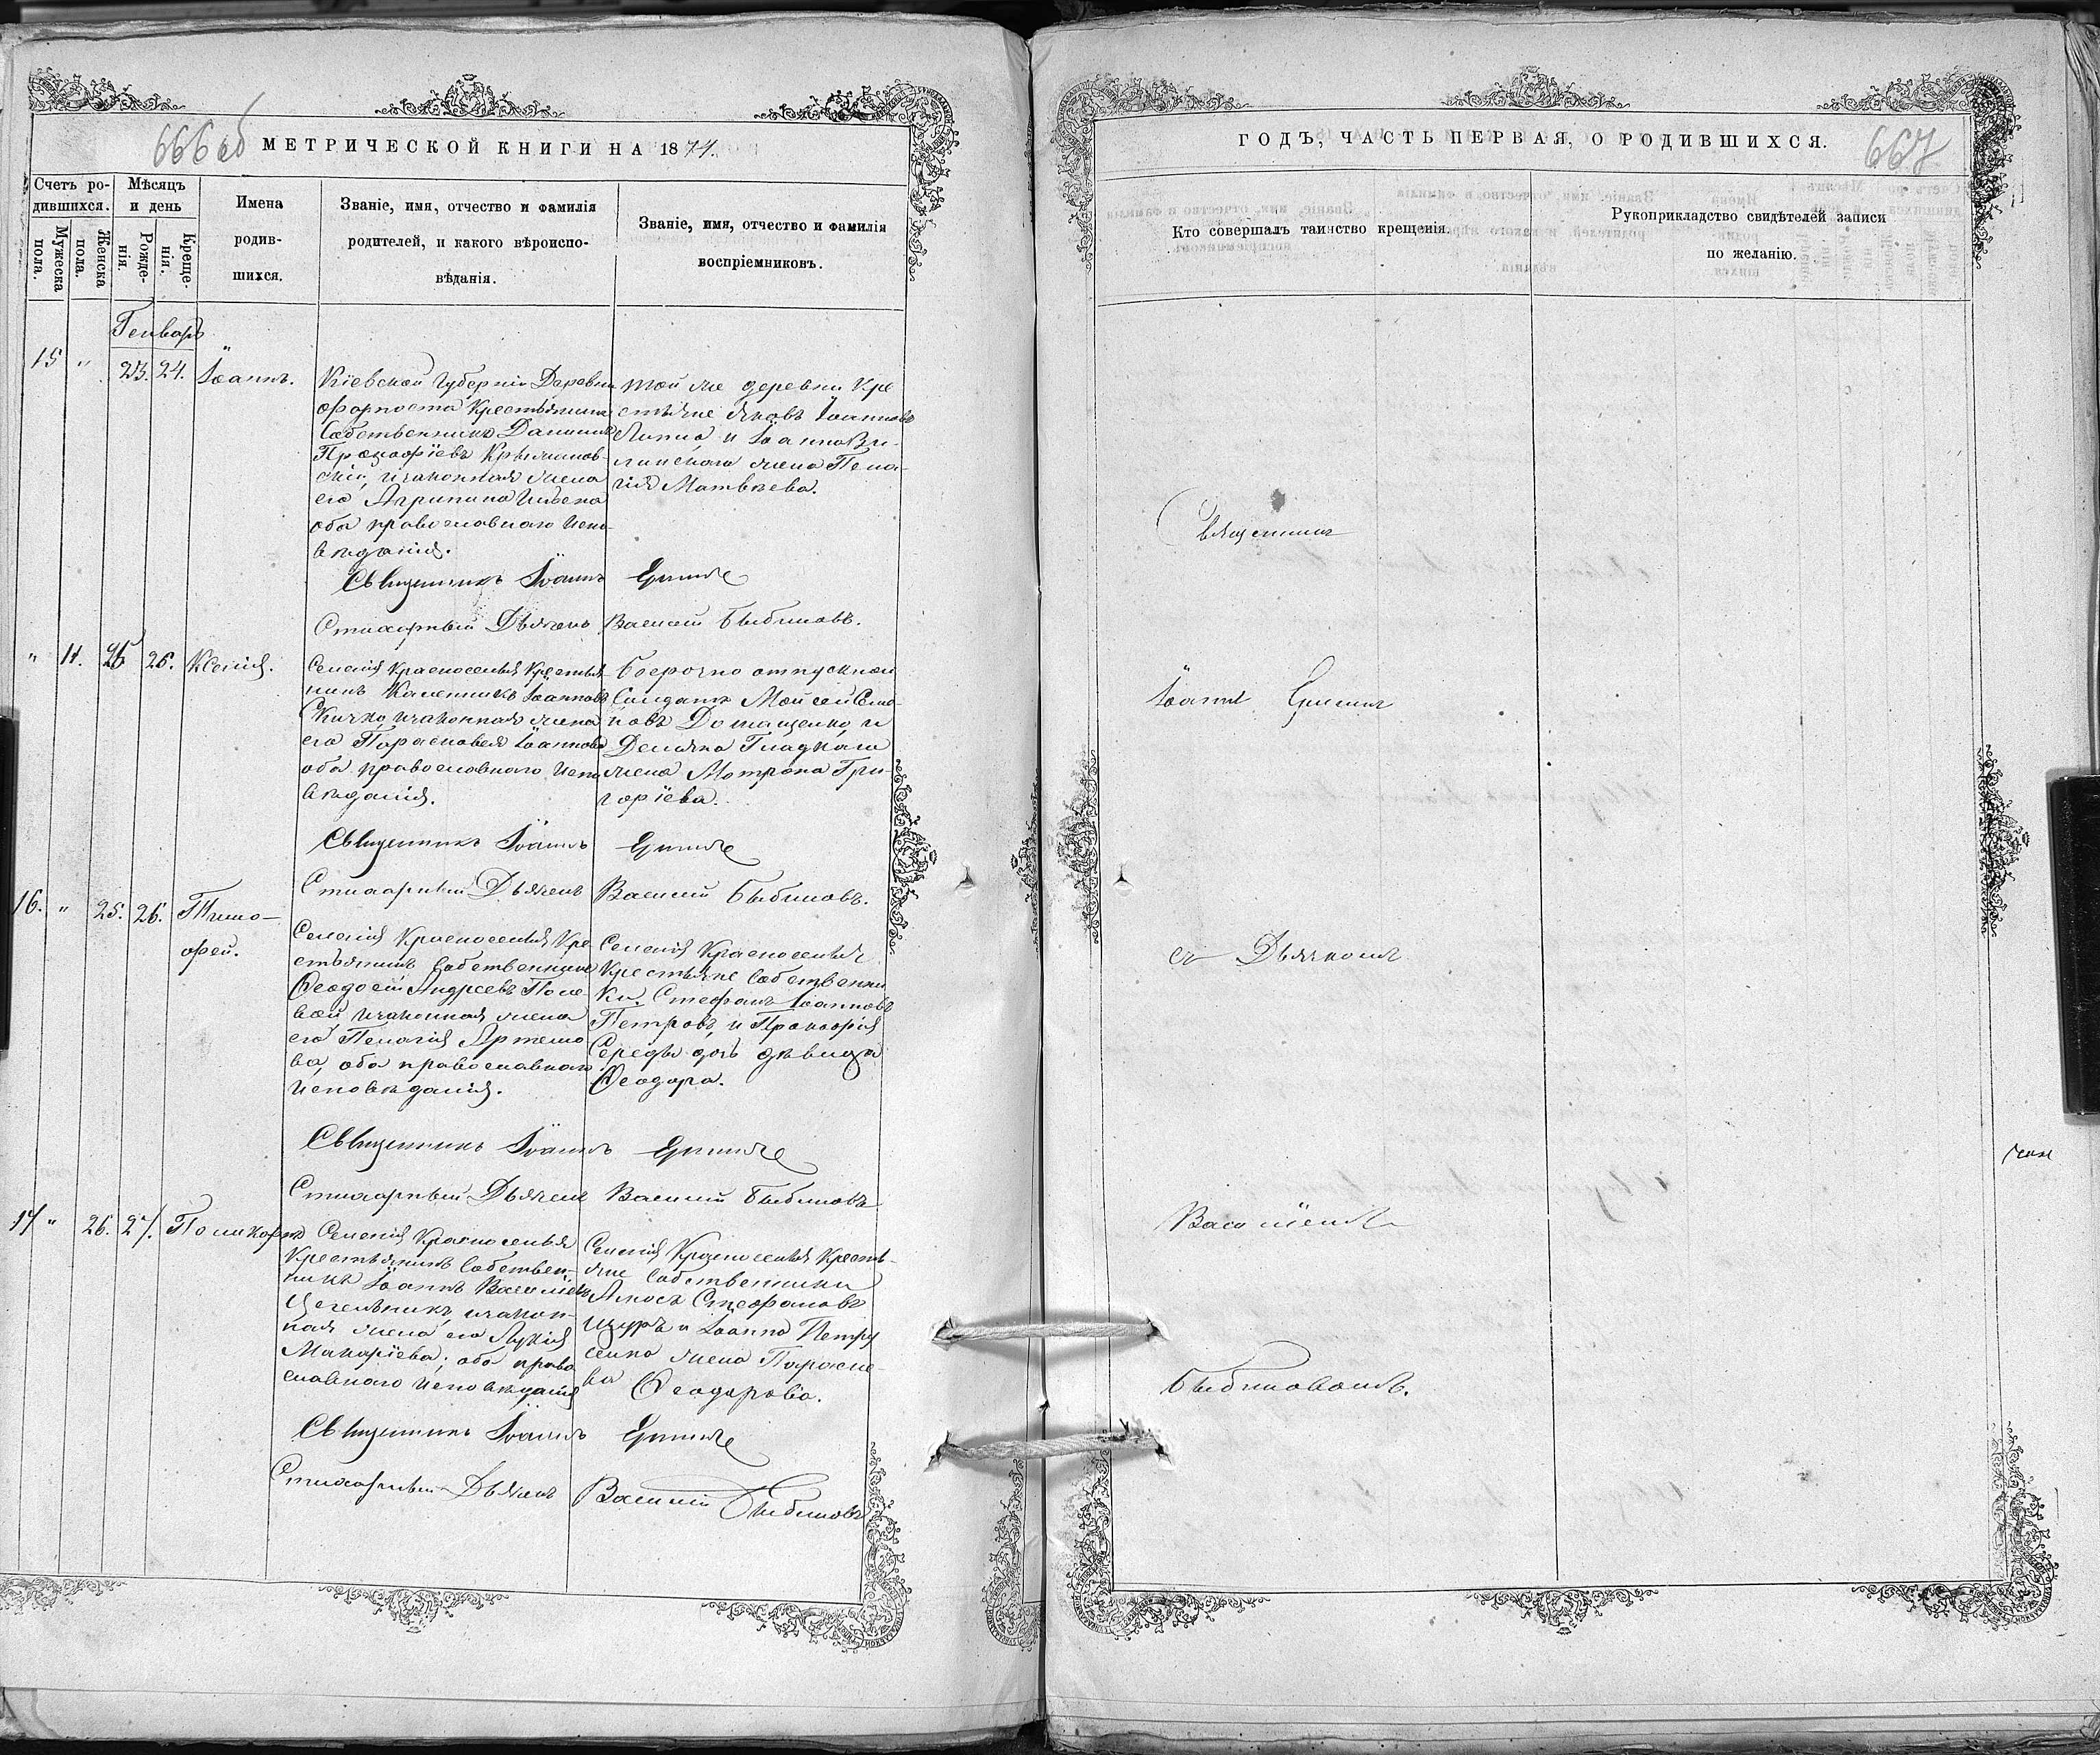 666 об
МЕТРИЧЕСКОЙ КНИГИ НА 1874.
Счетъ ро-
дившихся.
Мужеска
пола.
Женска
пола.
Мѣсяцъ
и день
Рожде-
нія.
Креще-
нія.
Имена
родив-
шихся.
Званіе, имя, отчество и фамилія
родителей, и какого вѣроиспо-
вѣданія.
Званіе, имя, отчество и фамилія
воспріемниковъ.
Генварь
15 " 23. 24. Іоаннъ.
Кіевской Губерніи Деревни
форпоста Крестьянинъ
Собственникъ Даніилъ
Прокофіевъ
и законная жена
его Агрипина
оба православнаго испо-
вѣданія.
той же деревни Кре
стьяне Яковъ Іоанновъ
Липа и Іоанна
жена Пела-
гія Матвѣева.
Священникъ Іоаннъ
Стихарный Дьячекъ Василій
" 11. 25 26. Ксенія.
Селенія Красноселья Крестья
нинъ Каленикъ Іоанновъ
Кичко, и законная жена
его Парасковея Іоаннова
оба православнаго испо
вѣданія.
безрочно отпускной
Солдатъ Мойсей
и
Демяна Гладкаго
жена Мотрона Гри-
горіева.
Священникъ Іоаннъ
Стихарный Дьячекъ Василій
16. " 25. 26. Тимо-
фей.
Селенія Красноселья Кре
стьянинъ Собственникъ
Феодосій Андреевъ Поле-
вой и законная жена
его Пелагія Артемо
ва, оба православнаго
исповѣданія.
Селенія Красноселья
Крестьяне Собственни
ки. Стефанъ Іоанновъ
Петровъ, и Прокофія
Середы дочь дѣвица
Феодора.
Священникъ Іоаннъ
Стихарный Дьячекъ Василій
17 " 26. 27. Поликарпъ
Селенія Красноселья
Крестьянинъ Собствен-
никъ Іоаннъ Василіевъ
Цегельникъ, и закон-
ная жена его Лукія
Макаріева; оба право
славнаго исповѣданія
Селенія Красноселья Кресть-
яне Собственники
Амосъ Стефановъ
Щуръ и Іоанна Петру
сенка жена Параске-
ва Феодорова.
Священникъ Іоаннъ
Стихарный Дьячекъ Василій
ГОДЪ, ЧАСТЬ ПЕРВАЯ, О РОДИВШИХСЯ.
667
Кто совершалъ таинство крещенія.
Рукоприкладство свидѣтелей записи
по желанію.
Священникъ
Іоаннъ
съ Дьячкомъ
Василіемъ